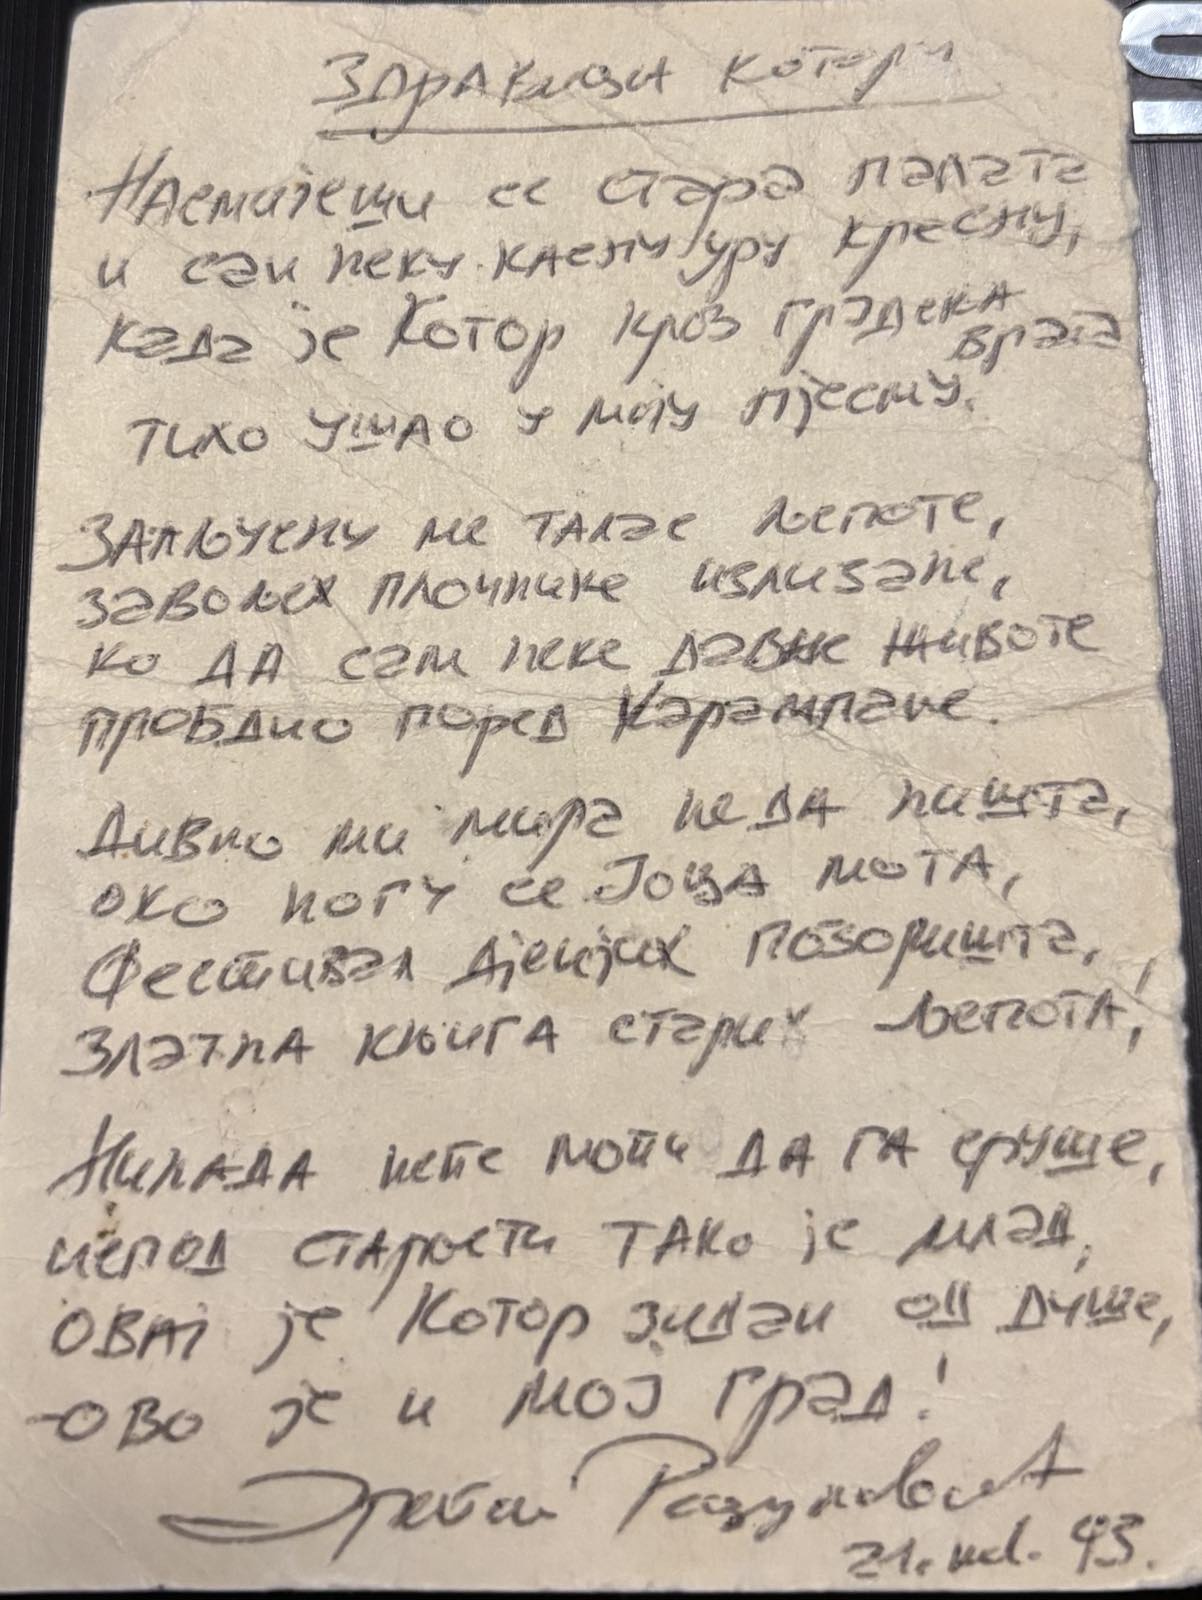 Здравица Котору
Насмијеши се стара палата
и сви неку касну уру кресну,
када је Котор кроз градска врата
тихо ушао у моју пјесму.
Запљусну ме талас љепоте,
заволех плочнике излизане,
ко да сам неке давне животе
пробдио поред Карампане.
Дивно ми мира не да ништа,
око ногу се Јоца мота,
Фестивал дјечјих позоришта,
златна књига старих љепота!
Никада неће моћи да га сруше,
испод старости тако је млад,
овај је Котор зидан од душе,
-ово је и мој град!
21. 93.